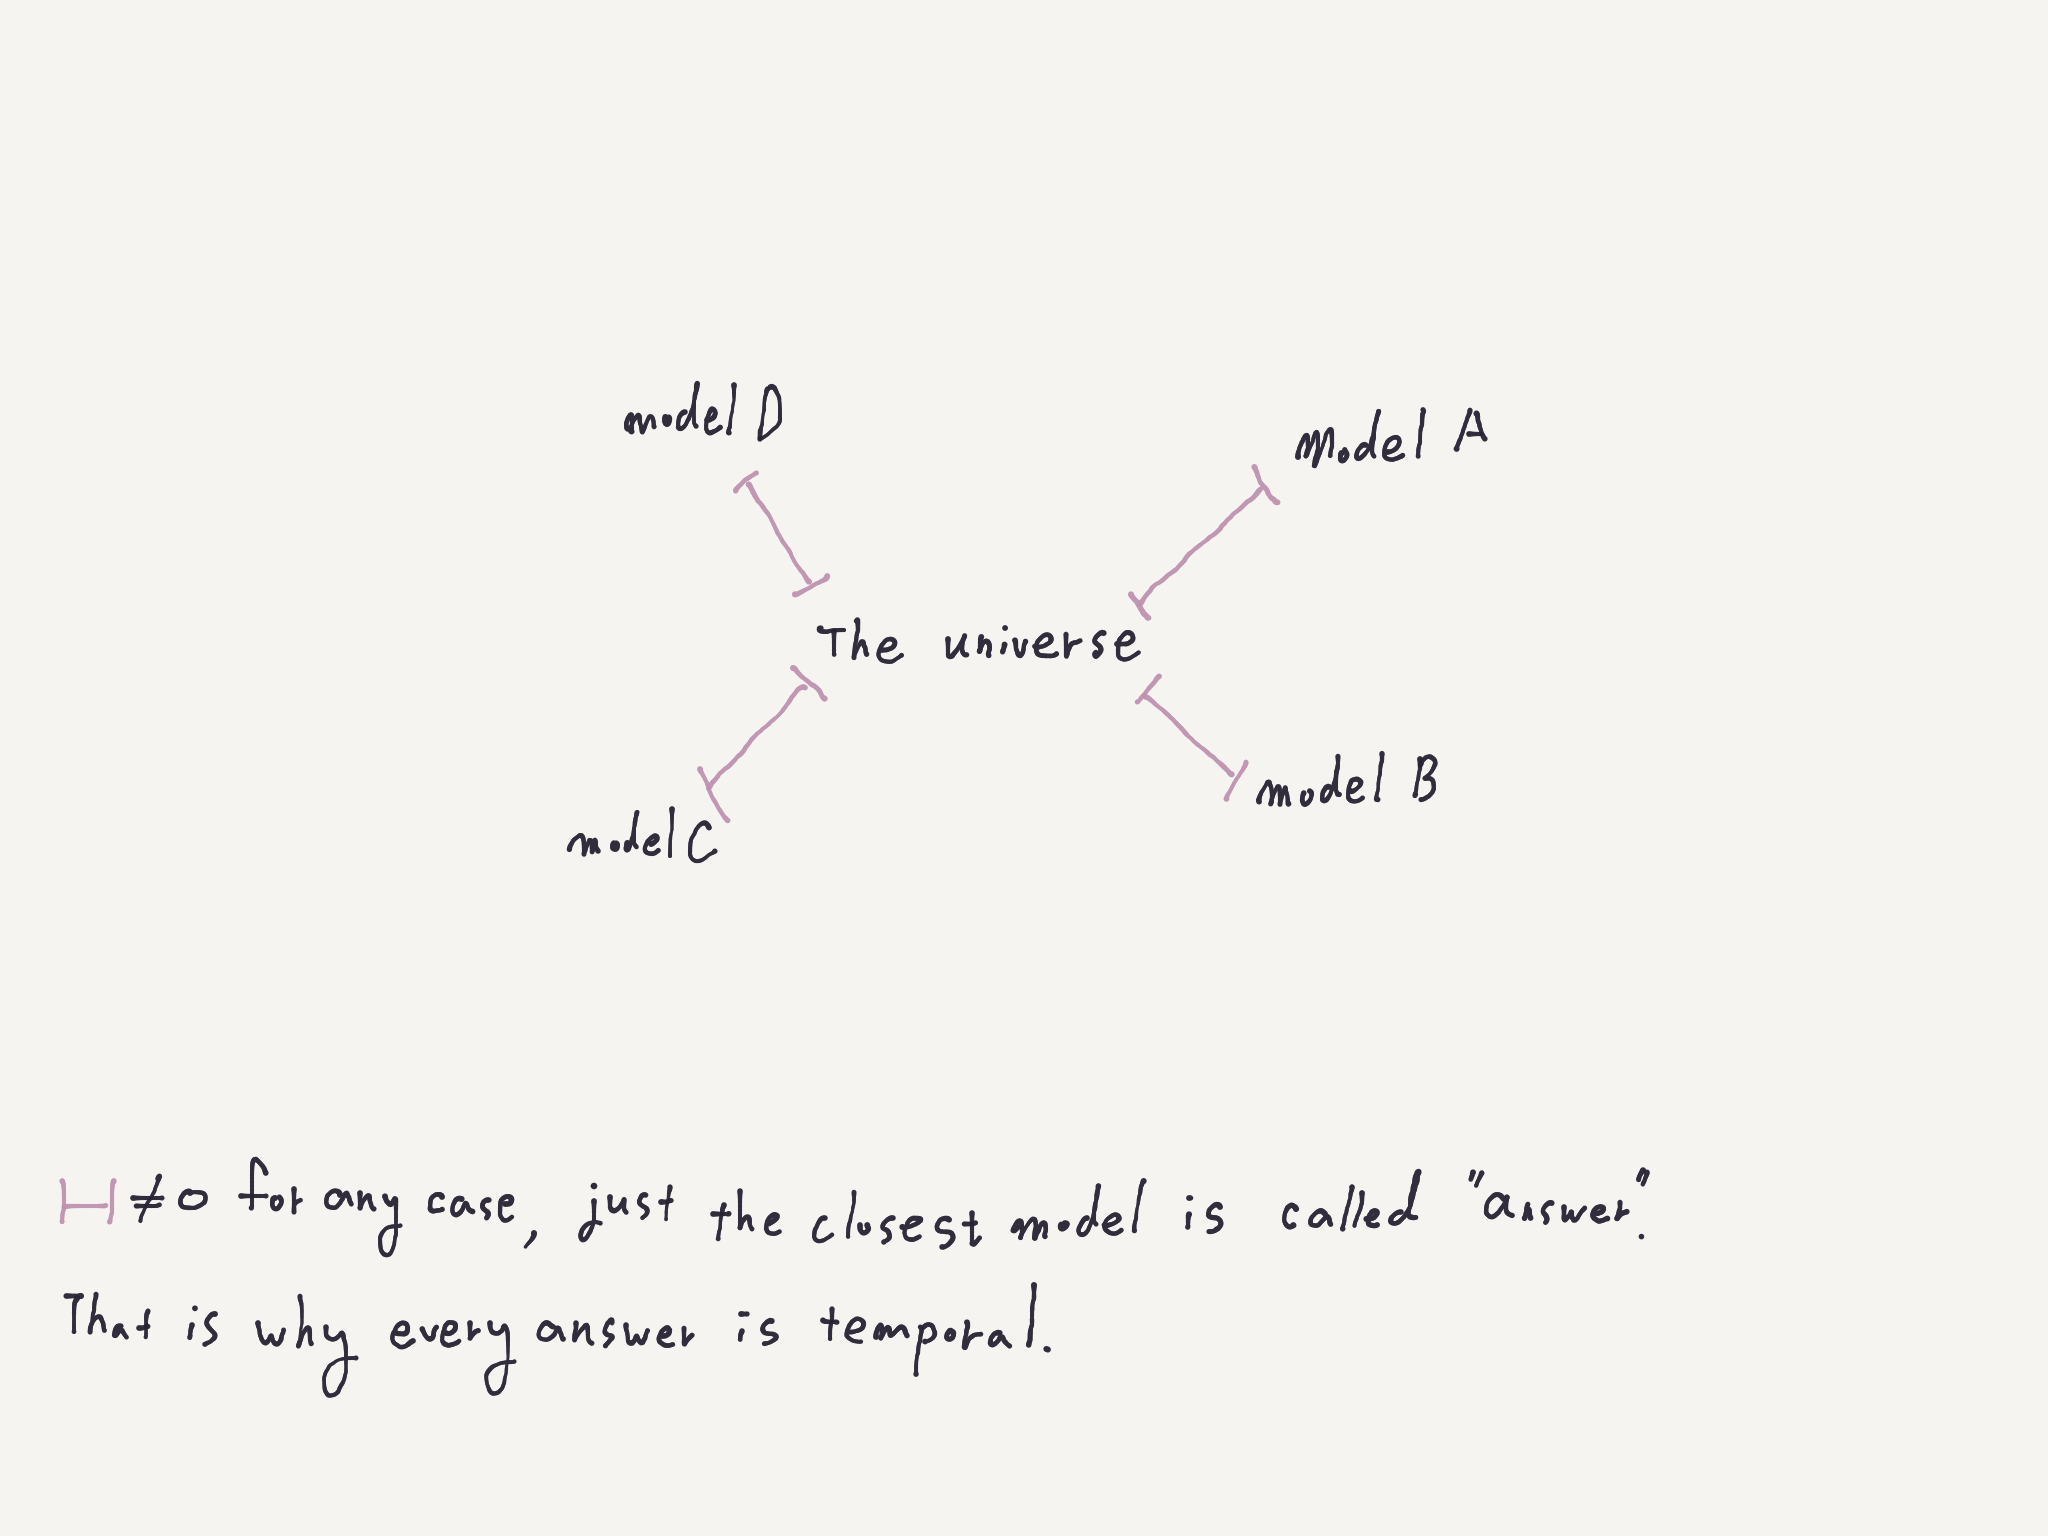 model D
Model A
The universe
model B
model C
≠0 for any case, just the closest model is called "answer".
That is why every answer is temporal.